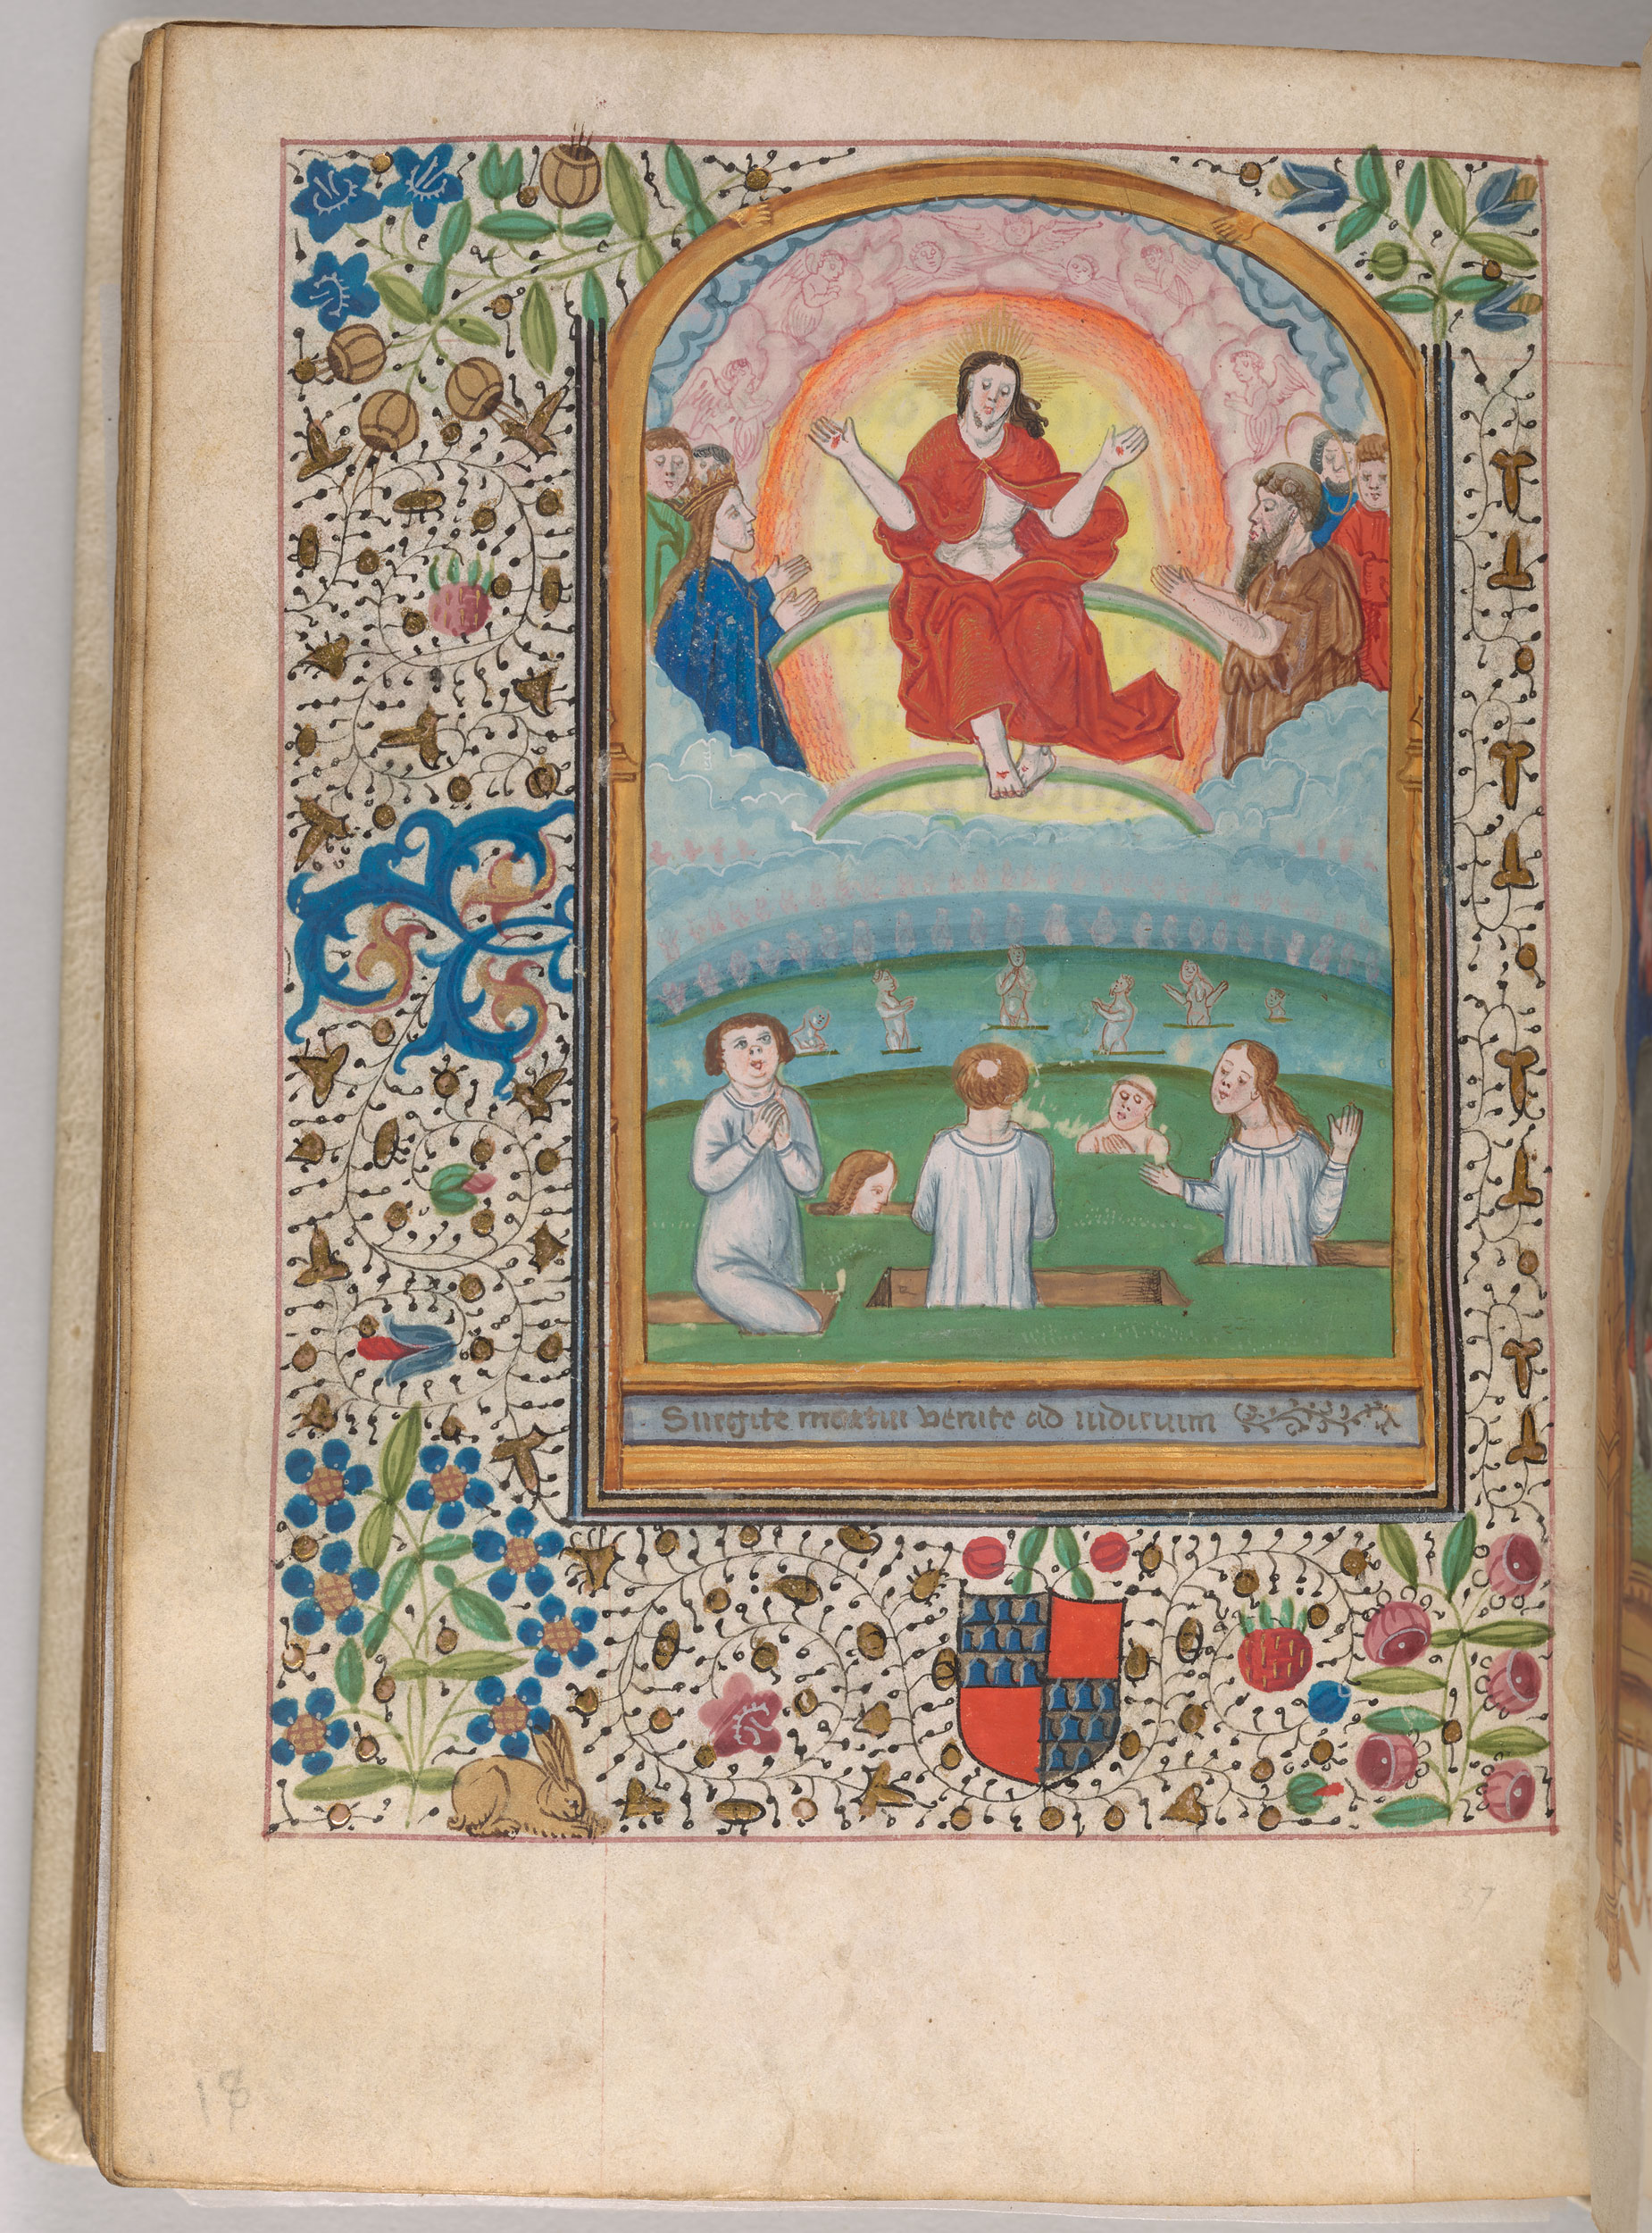 Surgite mortui venite ad iudicium
37
18